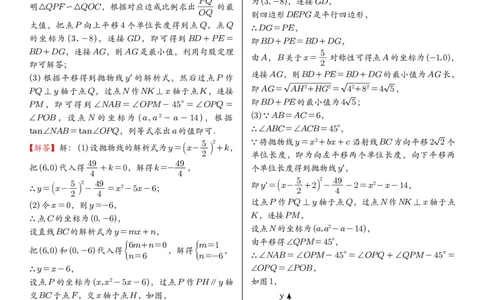 明△QPF∽△QOC，根据对应边成比例求出 PQ/OQ 的最
大值，把点P向上平移4个单位长度得到点Q，点Q
的坐标为(3,-8)，连接GD，即可得到BD+PE=
BD+DG，连接AG，则AG是最小值，利用勾股定理
即可解答；
(3)根据平移得到抛物线y′的解析式，然后过点P作
PQ⊥y轴于点Q，过点N作NK⊥x轴于点K，连接
PM，即可得到∠NAB=∠OPM-45°=∠OPQ=
∠POB，设点N的坐标为(a,a²-a-14)，根据
tan∠NAB=tan∠OPQ，列等式求出a的值即可．
【解答】解：(1)设抛物线的解析式为y=(x-5/2)²+k，
把(6,0)代得 49/4+k=0，解得k=-49/4，
∴y=(x-5/2)²-49/4=x²-5x-6；
(2)令x=0，则y=-6，
∴点C的坐标为(0,-6)，
设直线BC的解析式为y=mx+n，
把(6,0)和(0,-6)代入得{6m+n=0 n=6，解得{m=1 n=-6，
∴y=x-6，
设点P的坐标为(x,x²-5x-6)，过点P作PH∥y轴
交BC于点F，交x轴于点H，如图，
为(3,-8)，连接GD，
则四边形DEPG是平行四边形，
∴DG=PE，
即BD+PE=BD+DG，
由A、B关于x=5/2 对称性可得点A的坐标为(-1,0)，
连接AG，则BD+PE=BD+DG的最小值为AG长，
即AG=√AH²+HG²=√4²+8²=4√5，
即BD+PE的最小值为4√5；
(3)∵AB=AC=6，
∴∠ABC=∠ACB=45°，
∵将抛物线y=x²+bx+c沿射线BC方向平移2√2个
单位长度，即为向左平移两个单位长度，向下平移两
个单位长度得到抛物线y′，
即y′=(x-5/2+2)²-49/4-2=x²-x-14，
过点P作PQ⊥y轴于点Q，过点N作NK⊥x轴于点
K，连接PM，
设点N的坐标为(a,a²-a-14)，
由平移得∠QPM=45°，
∴∠NAB=∠OPM-45°=∠OPQ+∠QPM-45°=
∠OPQ=∠POB，
如图1，
y